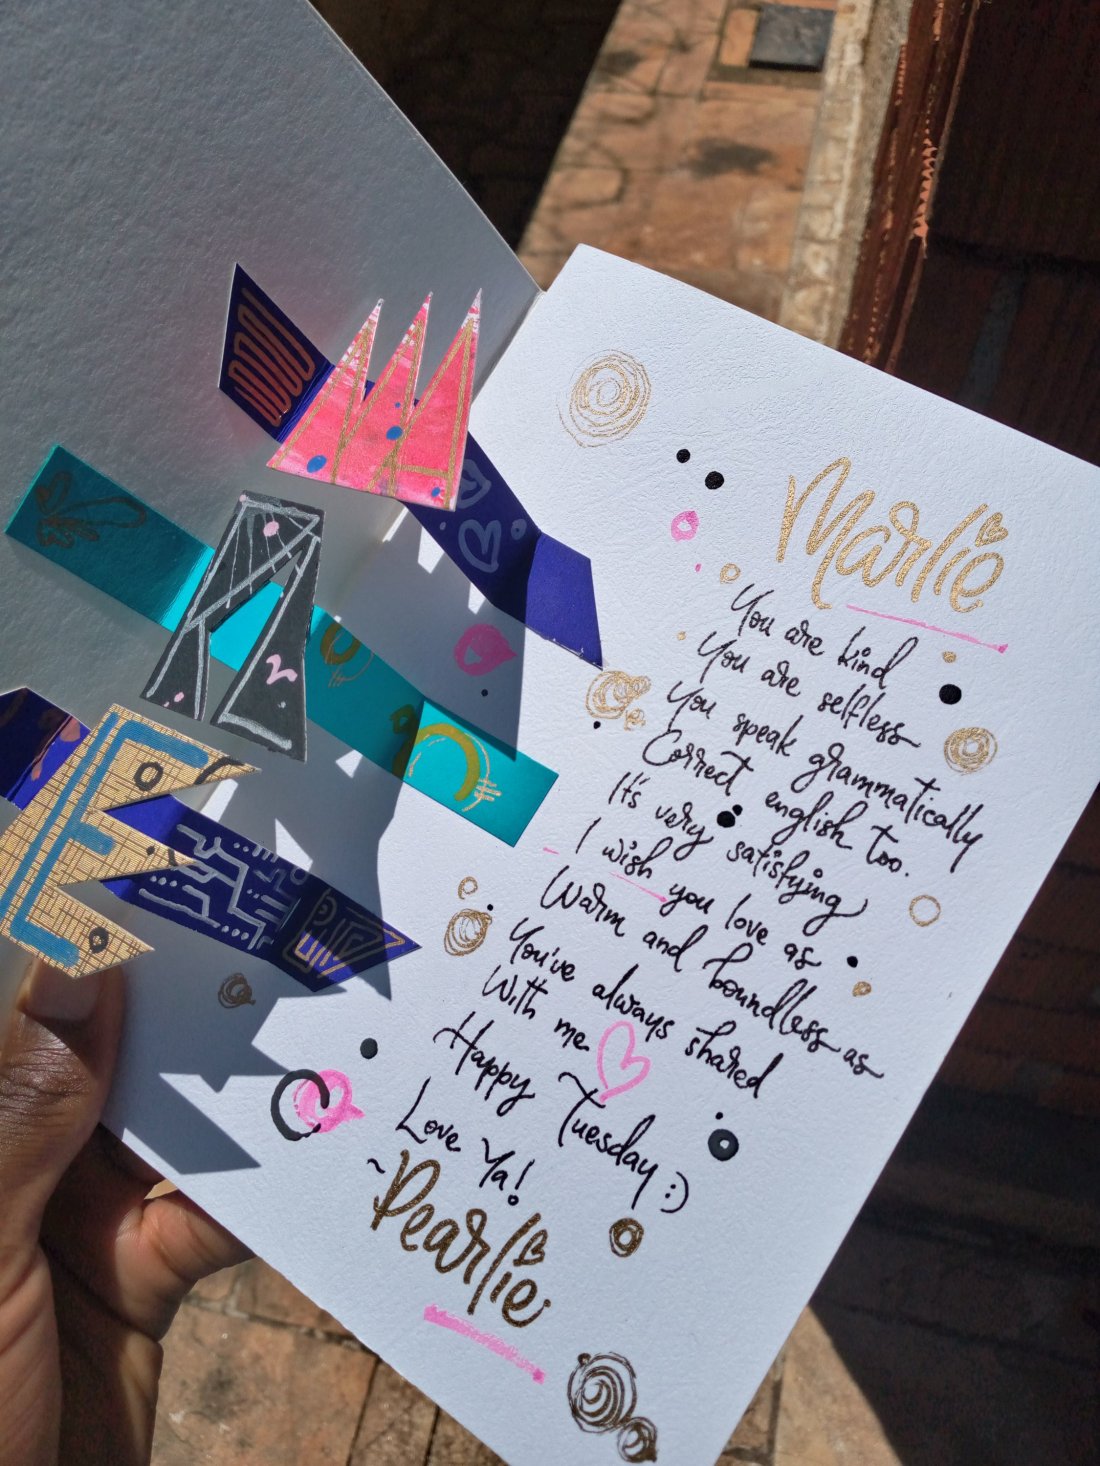 M
A
E
Marlie
You are kind
You are selfless
You speak grammatically
Correct english too.
It's very satisfying
I wish you love as
Warm and boundless as
You've always shared
With me
Happy Tuesday :)
Love Ya!
~Pearlie